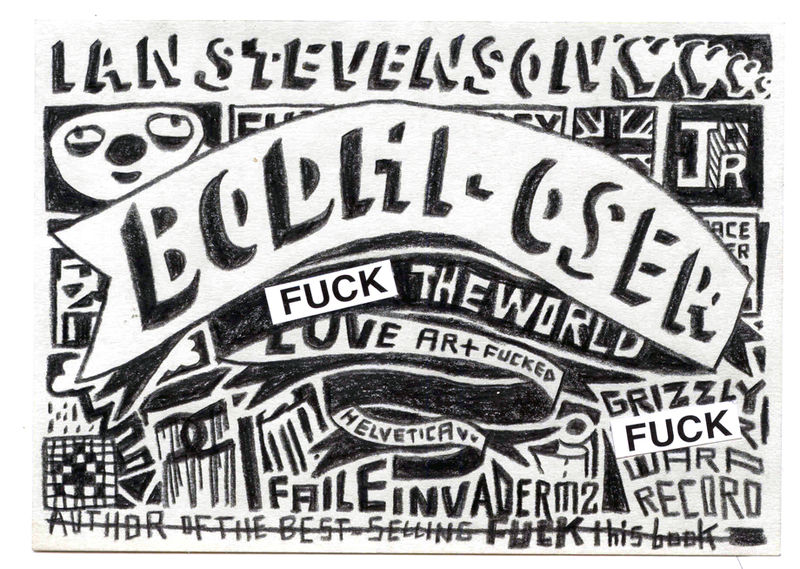 IAN STEVENSON
BODHI · OSER
FUCK THE WORLD
LOVE ART FUCKED
HELVETICA
GRIZZLY
FUCK
WARP
RECORD
FAILE INVADER M2
AUTHOR OF THE BEST-SELLING FUCK this book